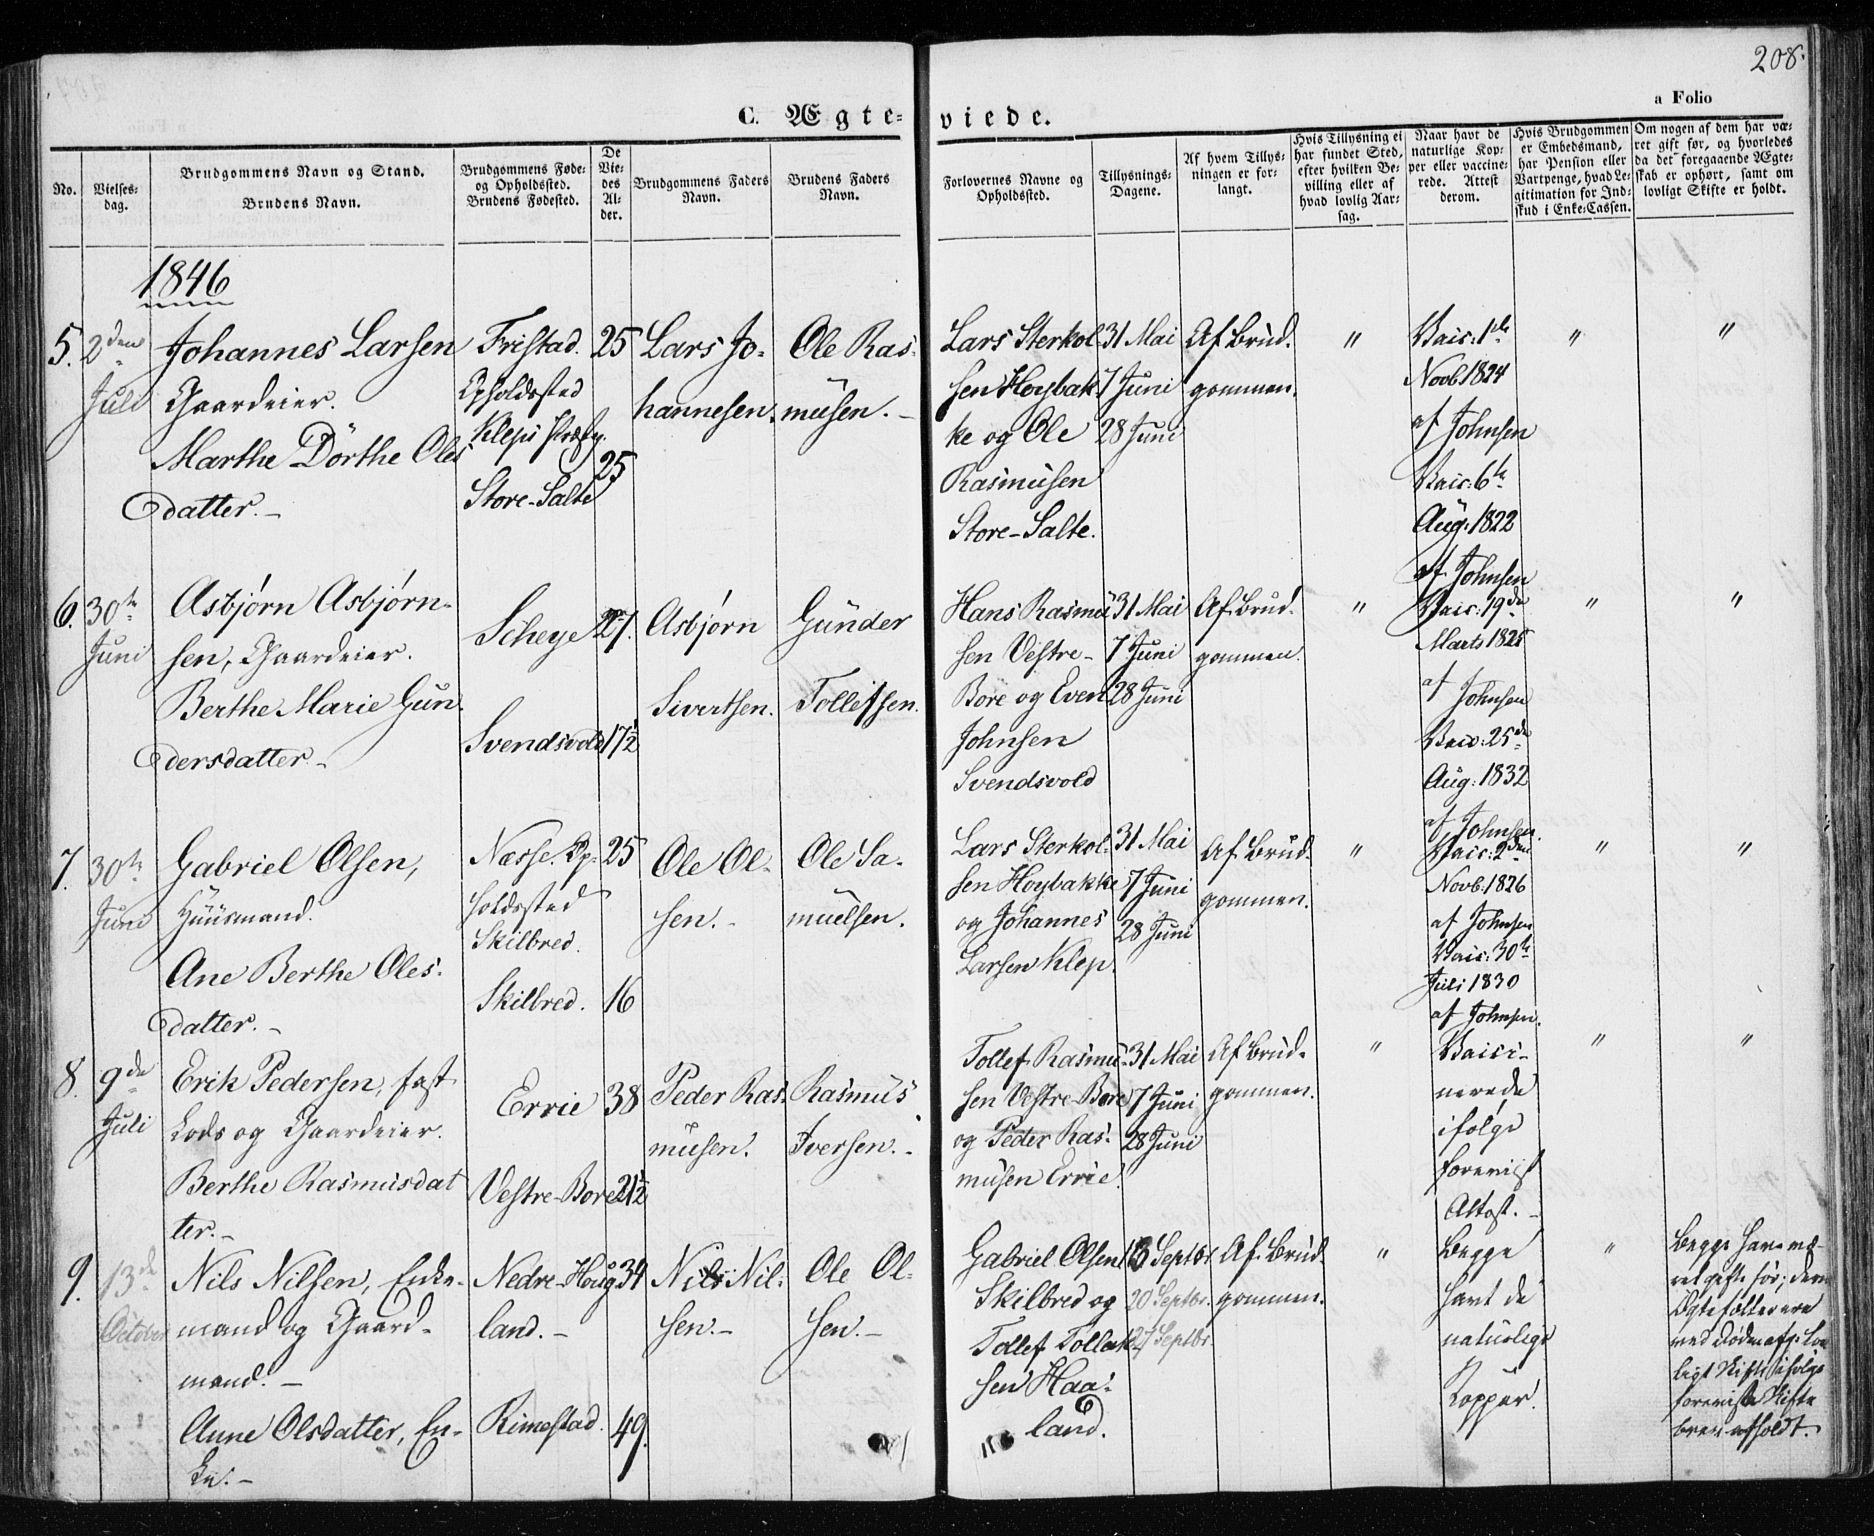 208.
a Folio
C. Ægte-
viede.
No.
Vielses-
dag.
Brudgommens Navn og Stand.
Brudens Navn.
Brudgommens Føde-
og Opholdssted.
Brudens Fødested.
De
Vie-
des
Al-
der.
Brudgommens Faders
Navn.
Brudens Faders
Navn.
Forlovernes Navne og
Opholdssted.
Tillysnings-
Dagene.
Af hvem Tillys-
ningen er for-
langt.
Hvis Tillysning ei
har fundet Sted,
efter hvilken Be-
villing eller af
hvad lovlig Aar-
sag.
Naar havt de
naturlige Kop-
per eller vaccine-
rede. Attest
derom.
Hvis Brudgommen
er Embedsmand,
har Pension eller
Vartpenge, hvad Le-
gitimation for Ind-
skud i Enke-Cassen.
Om nogen af dem har væ-
ret gift før, og hvorledes
da det foregaaende Ægte-
skab er ophørt, samt om
lovligt Skifte er holdt.
1846
5. 2den
Juli
Johannes Larsen
Gaardeier.
Marthe Dörthe Oles
datter.-
Fristad.
Opholdssted
Kleps Præstg.
Store-Salte
25
25
Lars Jo-
hannesen.
Ole Ras-
musen.-
Lars Sterkol-
sen Hoybak
ke og Ole
Rasmusen
Store-Salte.
31 Mai
7 Juni
28 Juni
Af Brud-
gommen.
"
Vaic: 1ste
Novb. 1824
af Johnsen
Vaic: 6te
Aug: 1822
af Johnsen
"
"
6. 30te
Juni
Asbjørn Asbjørn-
sen, Gaardeier.
Berthe Marie Gun
dersdatter-
Scheye
Svendsvold
27.
17½
Asbjørn
Sivertsen.
Gunder
Tollefsen.
Hans Rasmu
sen Vestre-
Bore og Even
Johnsen
Svendsvold
31 Mai
7 Juni
28 Juni
Af Brud-
gommen.
"
Vaic: 19de
Marts 1825
af Johnsen
Vaic: 25de
Aug: 1832
af Johnsen.
"
"
7. 30te
Juni
Gabriel Olsen,
Huusmand.
Ane Berthe Oles-
datter.-
Næsse. Op-
holdssted
Skilbred.
Skilbred.
25
16
Ole Ol-
sen.-
Ole Sa-
muelsen.
Lars Sterkol-
sen Hoybakke
og Johannes
Larsen Klep.
31 Mai
7 Juni
28 Juni
Af Brud-
gommen.
"
Vaic: 2den
Novb. 1826
af Johnsen
Vaic: 30te
Juli 1830
af Johnsen.
"
"
8. 9de
Juli
Erik Pedersen, fast
Lods og Gaardeier.
Berthe Rasmusdat
ter.-
Errie
Vestre-Bore
38
21½
Peder Ras-
musen.
Rasmus
Iversen.-
Tollef Rasmu-
sen Vestre-Bore
og Peder Ras-
musen Errie.
31 Mai
7 Juni
28 Juni
Af Brud-
gommen.
"
Vaici-
nerede
ifølge
foreviist
Attest.-
"
"
9. 13de
October
Nils Nilsen, Enke-
mand og Gaard-
mand.-
Anne Olsdatter, En-
ke.-
Nedre-Houg
land.-
Rimestad.
34
49.
Nils Nil-
sen.-
Ole Ol-
sen.-
Gabriel Olsen
Skilbred og
Tollef Tollak
sen Haa-
land.
13 Septbr
20 Septbr.
27 Septbr
Af Brud-
gommen.
"
Begge
havt de
naturlige
Kopper.
"
Begge have væ-
ret gifte før; deres
Ægtefæller ere
ved Døden afg: Lov
ligt Skifte ifølge
foreviste Skifte
breve afholdt.